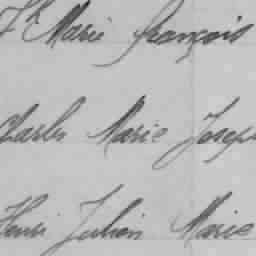 Marie François
Charles Marie Joseph
Henri Julien Marie